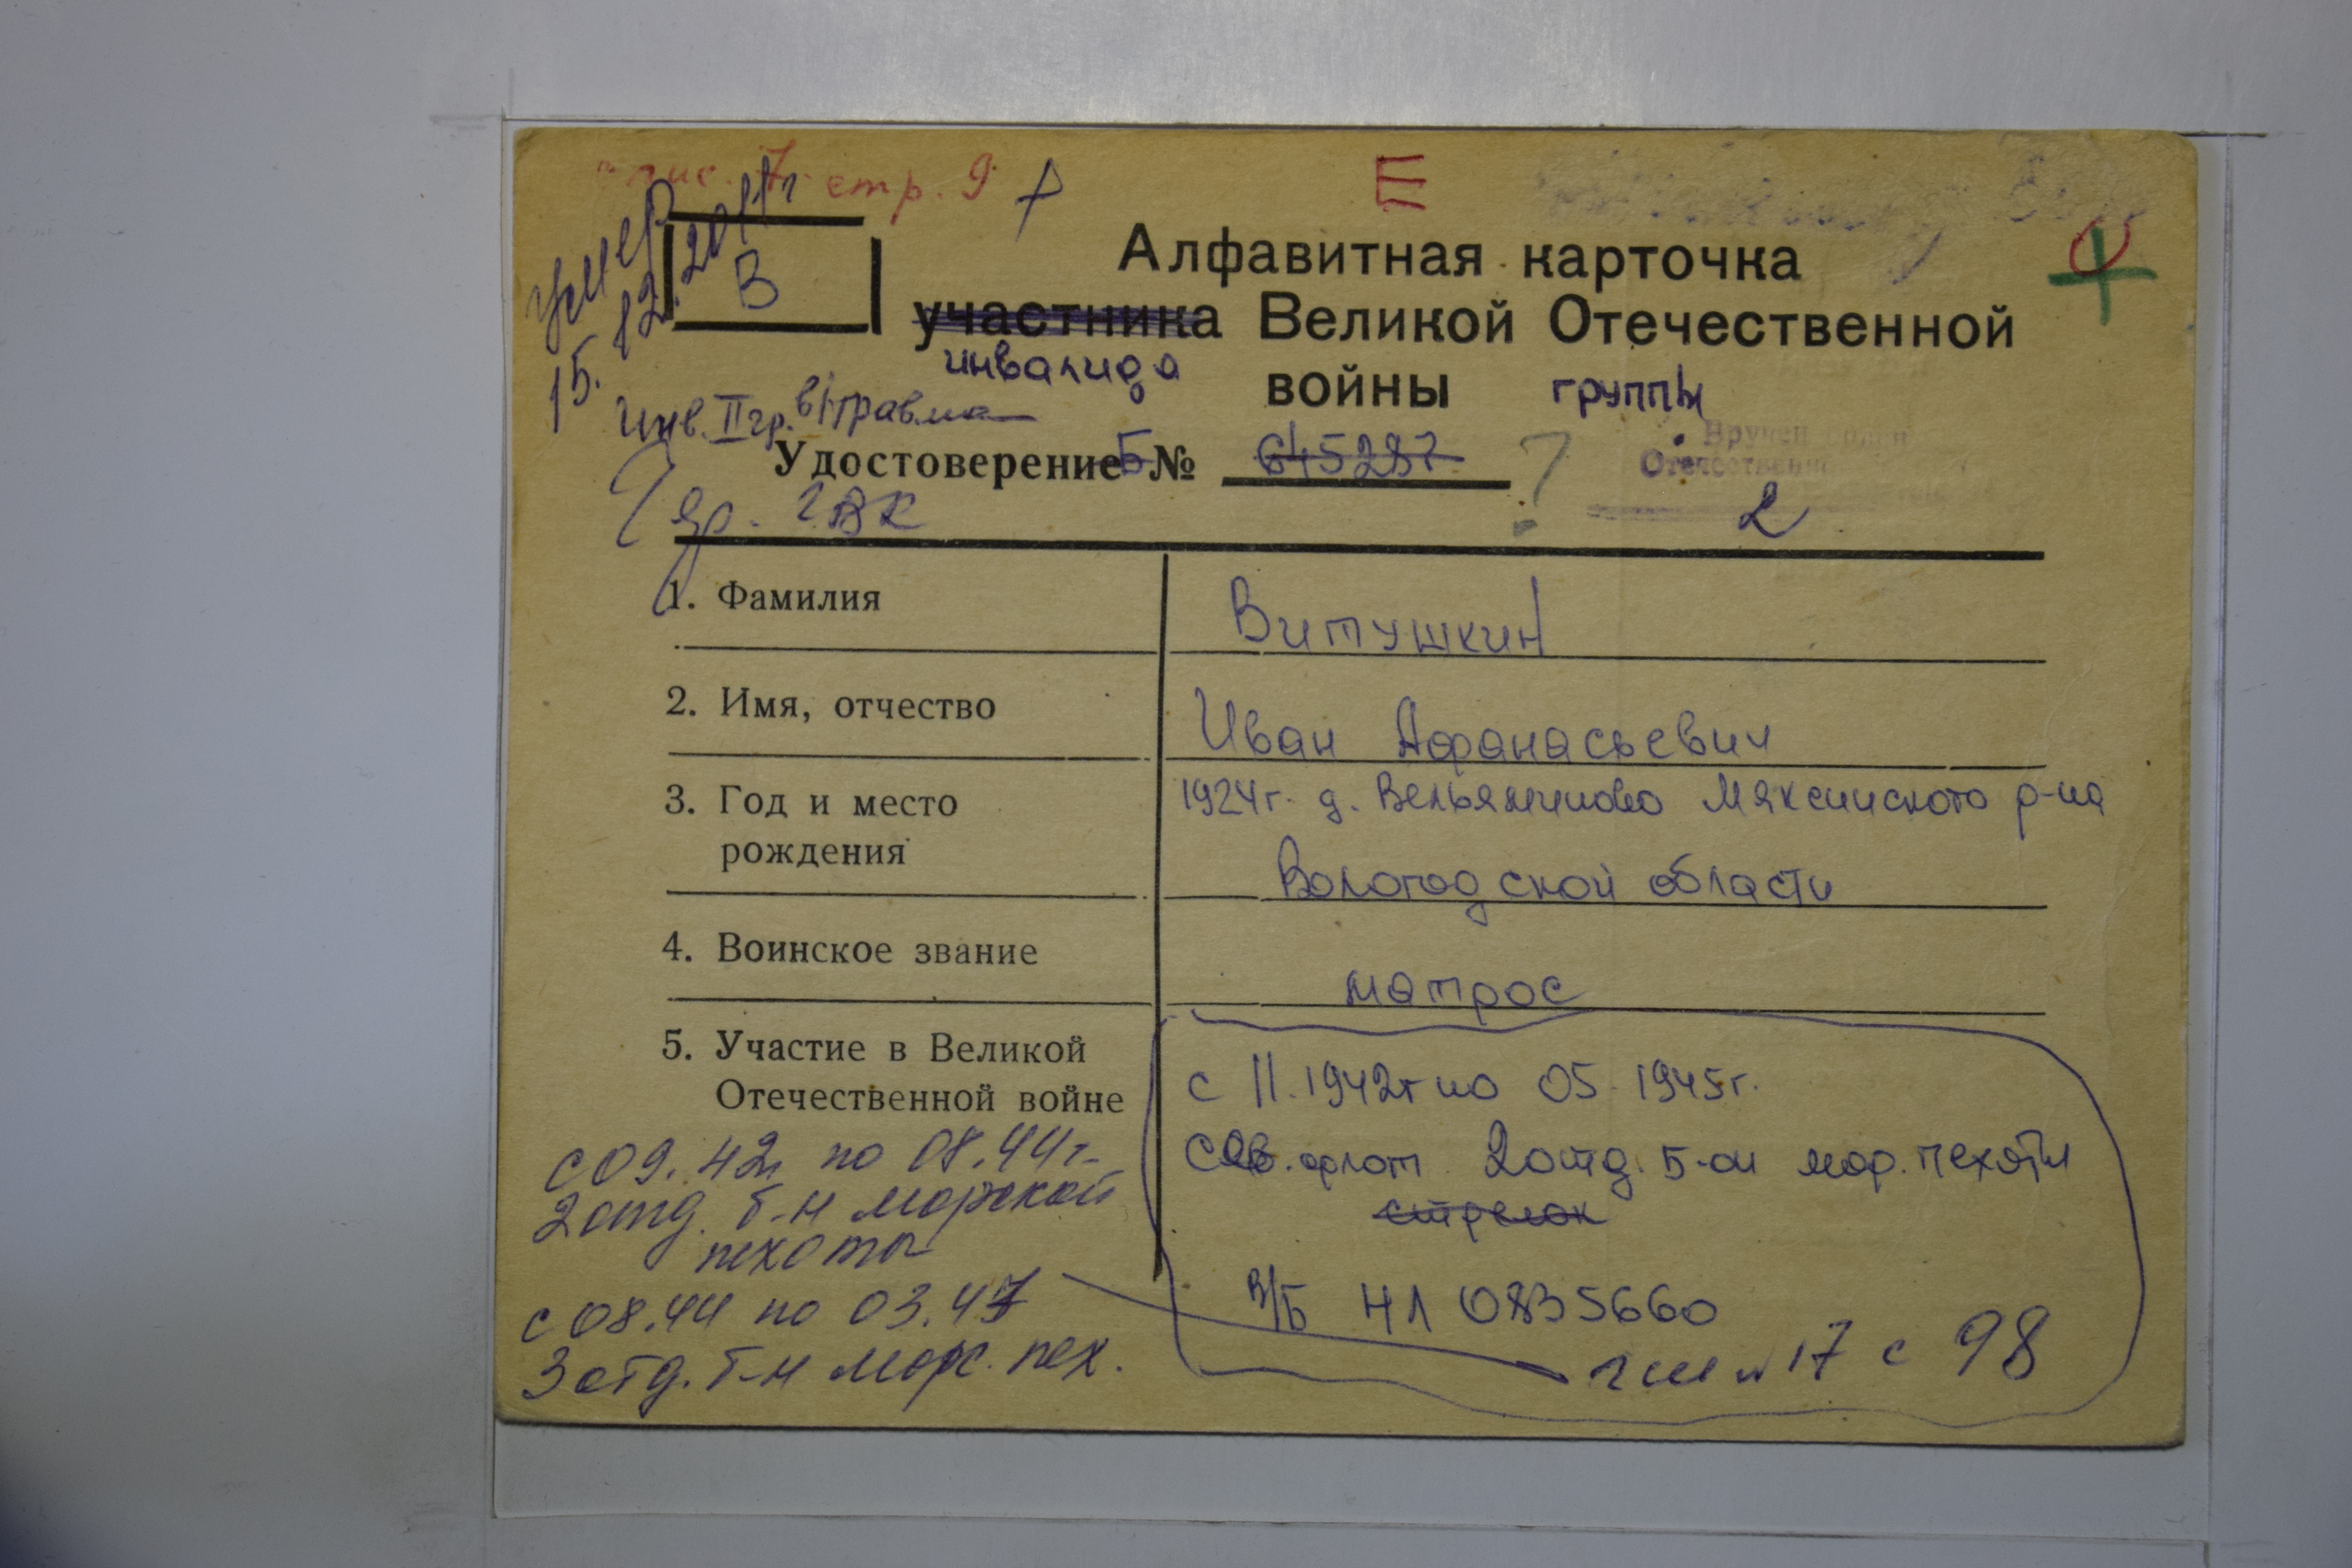 стр. 9
Е
умер
15.12.2011г
В
Алфавитная карточка
участника Великой Отечественной
инвалида
войны группы
Инв. II гр. в/травма
Удостоверение Б № 645287 ?
Вручен орден
Отечественной
2
яр. ГВК
1. Фамилия Витушкин
2. Имя, отчество Иван Афанасьевич
3. Год и место 1924г. д. Вельяминово Мяксинского р-на
рождения Вологодской области
4. Воинское звание матрос
5. Участие в Великой с 11.1942г по 05.1945г.
Отечественной войне Сев. флот 2 отд. б-он мор. пехоты
стрелок
с 09.42г по 08.44г.
2 отд. б-н морской
пехоты
в/б НЛ 0835660
с 08.44 по 03.47
3 отд. б-н морс. пех.
17 с 98